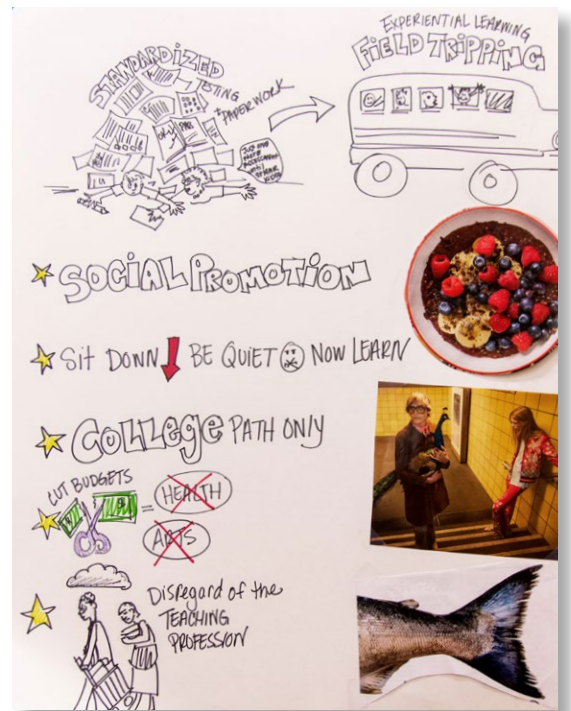 STANDARDIZED
TESTING
+ PAPERWORK
EXPERIENTIAL LEARNING
FIELD TRIPPING
SOCIAL PROMOTION
Sit DOWN BE QUIET NOW LEARN
COLLEGE PATH ONLY
CUT BUDGETS
= HEALTH
ARTS
Disregard of the
TEACHING
PROFESSION